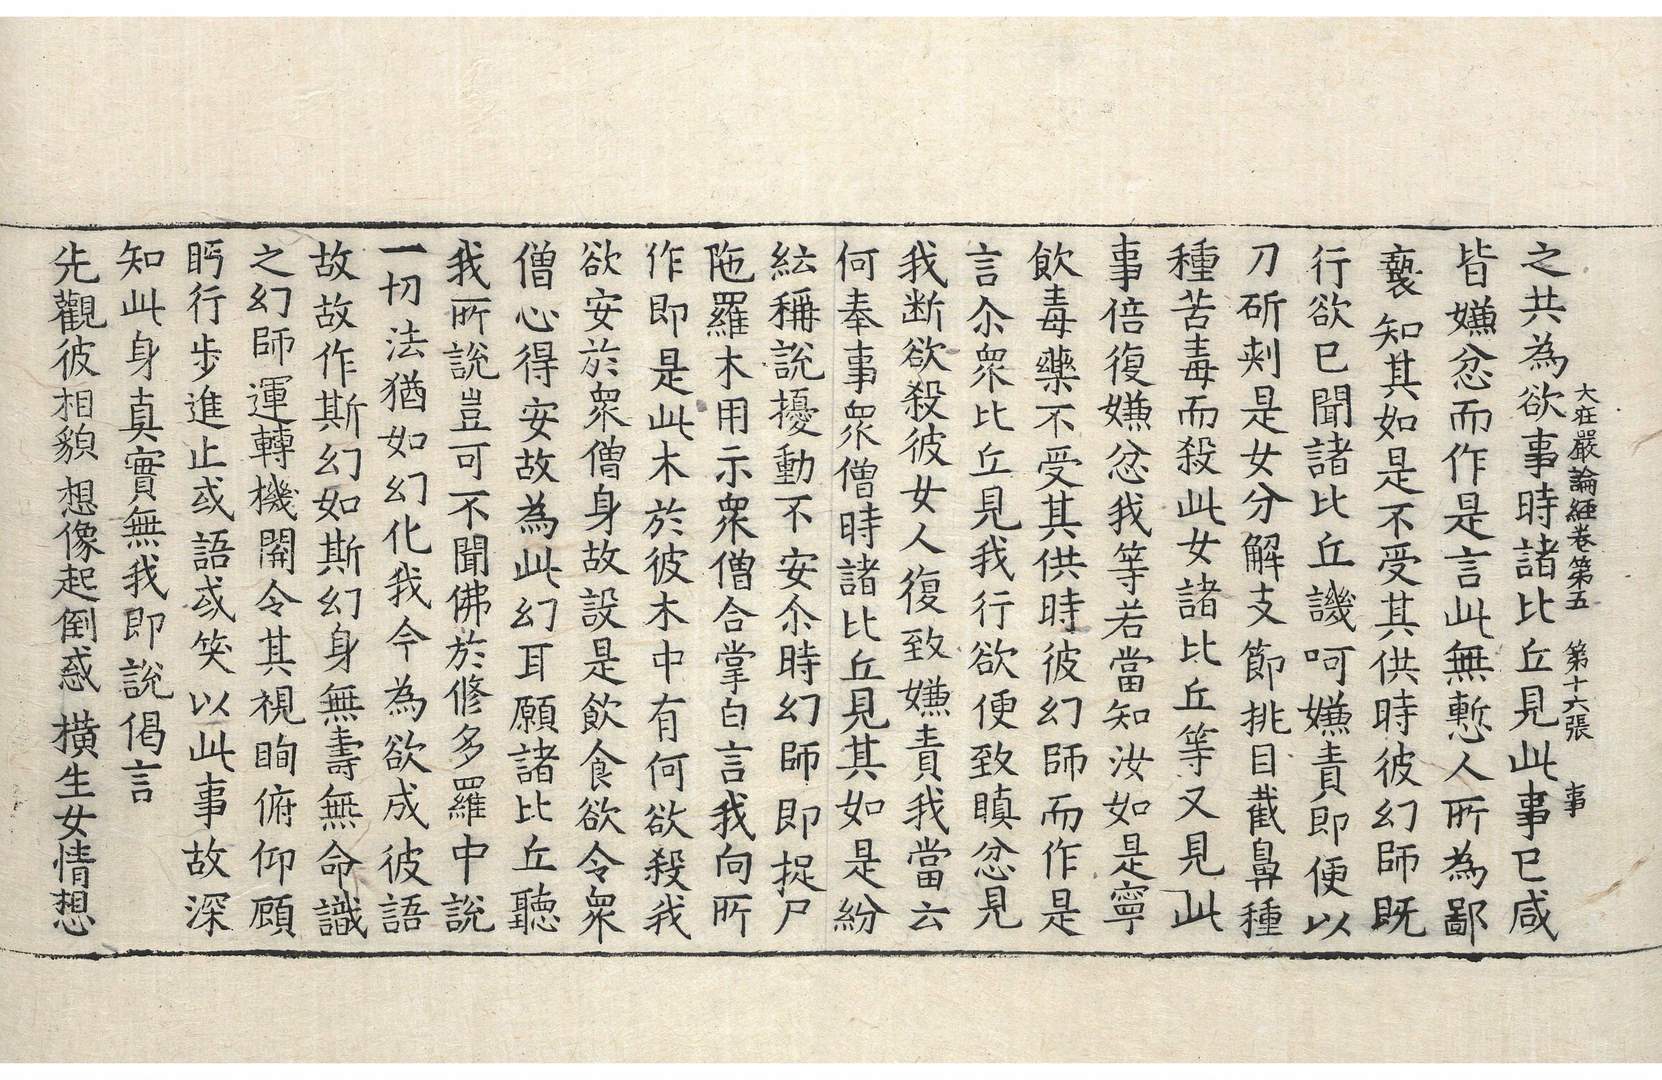 大庄嚴論經卷第五　第十六張　事
之共為欲事時諸比丘見此事已咸
皆嫌忿而作是言此無慙人所為鄙
褻知其如是不受其供時彼幻師既
行欲已聞諸比丘譏呵嫌責即便以
刀斫刺是女分解支節挑目截鼻種
種苦毒而殺此女諸比丘等又見此
事倍復嫌忿我等若當知汝如是寧
飲毒藥不受其供時彼幻師而作是
言尒衆比丘見我行欲便致瞋忿見
我断欲殺彼女人復致嫌責我當云
何奉事衆僧時諸比丘見其如是紛
紜稱說擾動不安尒時幻師即捉尸
陁羅木用示衆僧合掌白言我向所
作即是此木於彼木中有何欲殺我
欲安於衆僧身故設是飲食欲令衆
僧心得安故為此幻耳願諸比丘聽
我所說豈可不聞佛於修多羅中說
一切法猶如幻化我今為欲成彼語
故故作斯幻如斯幻身無壽無命識
之幻師運轉機關令其視眴俯仰顧
眄行步進止或語或笑以此事故深
知此身真實無我即說偈言
先觀彼相貌　想像起倒惑　橫生女情想